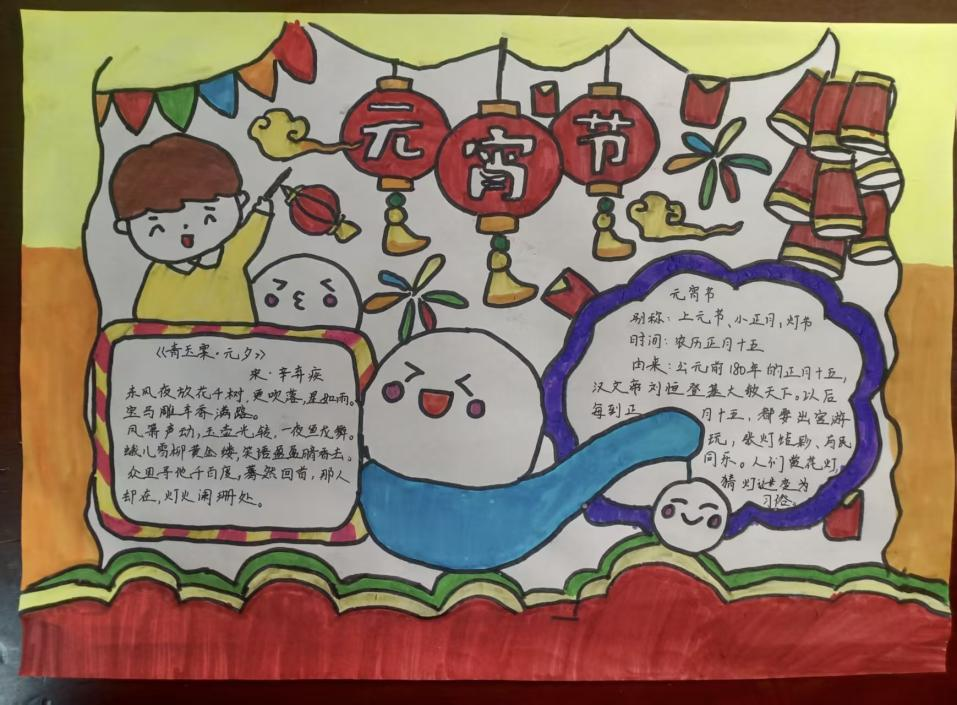 元宵节
《青玉案·元夕》
宋·辛弃疾
东风夜放花千树,更吹落,星如雨。
宝马雕车香满路。
凤箫声动,玉壶光转,一夜鱼龙舞。
蛾儿雪柳黄金缕,笑语盈盈暗香去。
众里寻他千百度,蓦然回首,那人
却在,灯火阑珊处。
元宵节
别称:上元节、小正月、灯节
时间:农历正月十五
由来:公元前180年的正月十五,
汉文帝刘恒登基大赦天下。以后
每到正月十五,都要出宫游
玩,张灯结彩、与民
同乐。人们赏花灯,
猜灯谜变为
习俗。